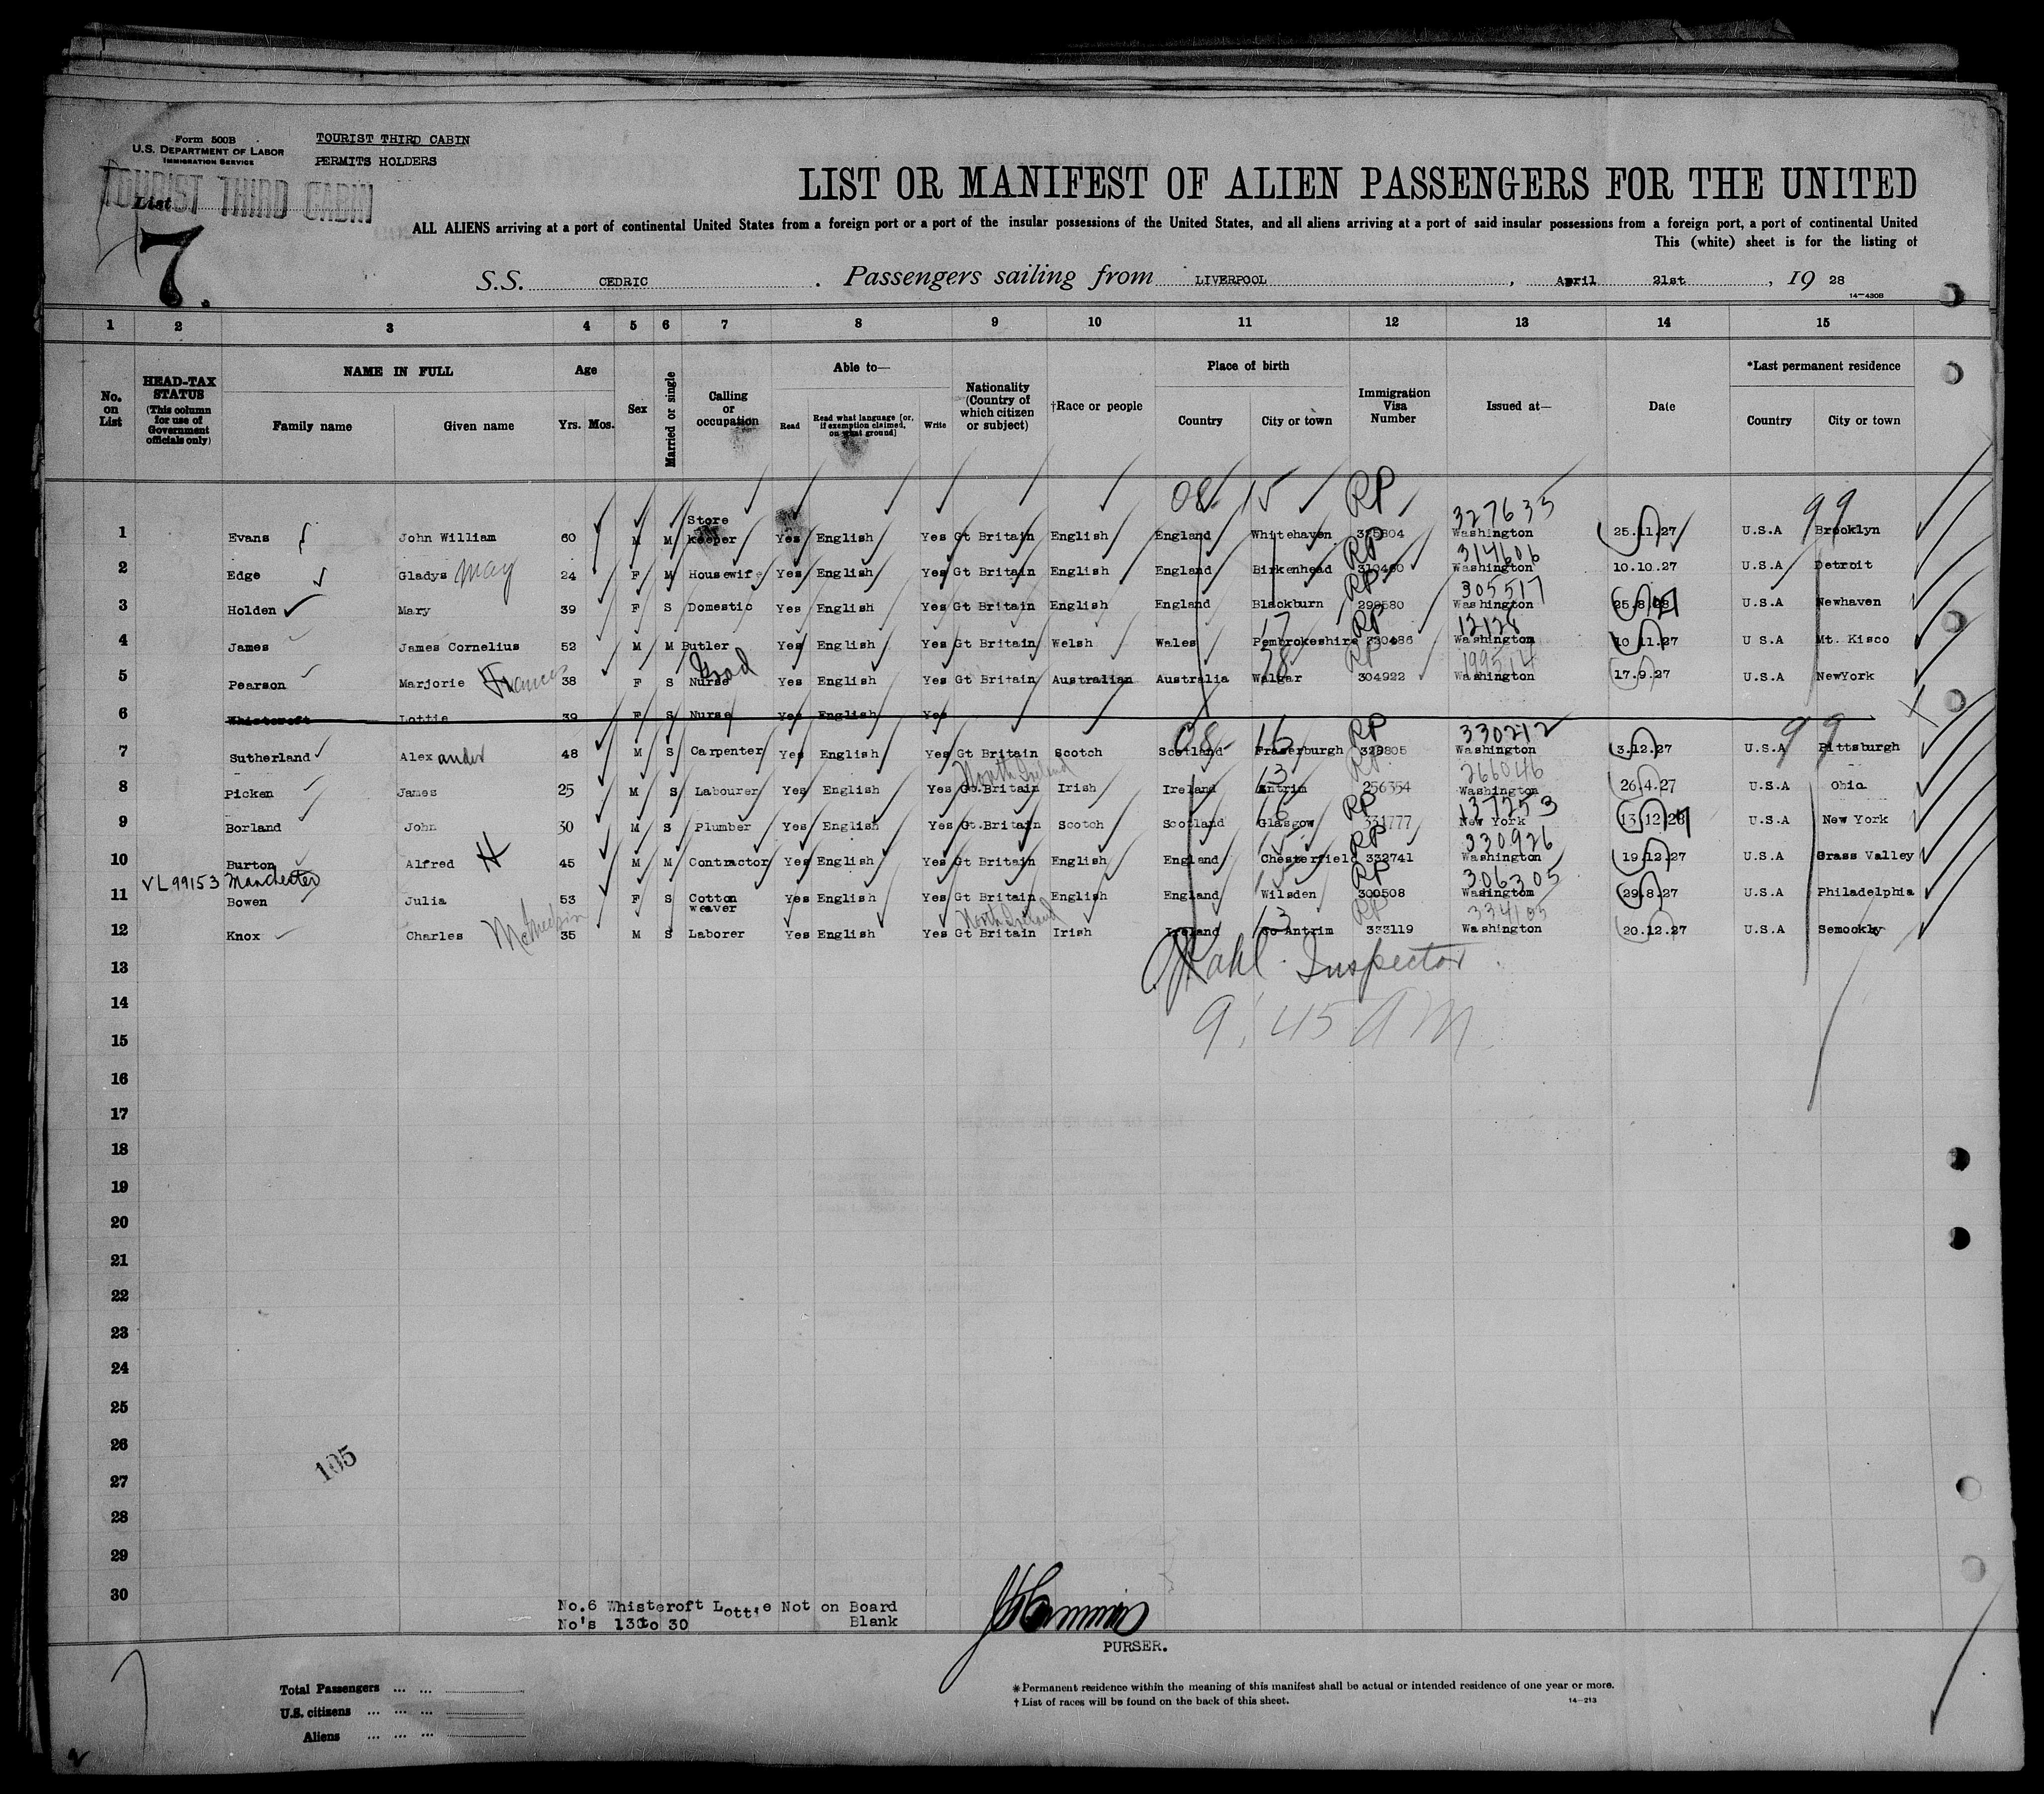 Form 500B
U.S. DEPARTMENT OF LABOR
IMMIGRATION SERVICE
TOURIST THIRD CABIN
PERMITS HOLDERS
TOURIST THIRD CABIN
List
7.
LIST OR MANIFEST OF ALIEN PASSENGERS FOR THE UNITED
ALL ALIENS arriving at a port of continental United States from a foreign port or a port of the insular possessions of the United States, and all aliens arriving at a port of said insular possessions from a foreign port, a port of continental United
This (white) sheet is for the listing of
S.S. CEDRIC . Passengers sailing from LIVERPOOL , April 21st , 19 28
14-430B
1 2 3 4 5 6 7 8 9 10 11 12 13 14 15
No. on List
HEAD-TAX STATUS (This column for use of Government officials only)
NAME IN FULL Family name Given name
Age Yrs. Mos.
Sex
Married or single
Calling or occupation
Able to— Read Read what language [or, if exemption claimed, on what ground] Write
Nationality (Country of which citizen or subject)
†Race or people
Place of birth Country City or town
Immigration Visa Number
Issued at—
Date
*Last permanent residence Country City or town
08 15 RP 327635 99
1 Evans John William 60 M M Store keeper Yes English Yes Gt Britain English England Whitehaven Washington 25.11.27 U.S.A Brooklyn
RP 314606
2 Edge Gladys May 24 F M Housewife Yes English Yes Gt Britain English England Birkenhead 310460 Washington 10.10.27 U.S.A Detroit
RP 305517
3 Holden Mary 39 F S Domestic Yes English Yes Gt Britain English England Blackburn 299580 Washington U.S.A Newhaven
17 RP
4 James James Cornelius 52 M M Butler Yes English Yes Gt Britain Welsh Wales Pembrokeshire 330486 Washington 10.11.27 U S A Mt. Kisco
Grad 28 RP
5 Pearson Marjorie Frances 38 F S Nurse Yes English Yes Gt Britain Australian Australia Walgar 304922 Washington 17.9.27 U.S.A NewYork
6 Whisteroft Lottie 39 F S Nurse Yes English Yes
08 16 RP 330212 99
7 Sutherland Alexander 48 M S Carpenter Yes English Yes Gt Britain Scotch Scotland Fraserburgh 328805 Washington 3.12.27 U.S.A Pittsburgh
North Ireland 13 RP 266046
8 Picken James 25 M S Labourer Yes English Yes Gt.Britain Irish Ireland Antrim 256354 Washington 26.4.27 U.S.A Ohio
16 RP 137253
9 Borland John 30 M S Plumber Yes English Yes Gt.Britain Scotch Scotland Glasgow 331777 New York U.S.A New York
15 RP 330926
10 Burton Alfred H 45 M M Contractor Yes English Yes Gt Britain English England Chesterfield 332741 Washington 19.12.27 U.S.A Grass Valley
VL 99153 Manchester 15 RP 306305
11 Bowen Julia 53 F S Cotton weaver Yes English Yes Gt Britain English England Wilsden 300508 Washington 29.8.27 U.S.A Philadelphia
North Ireland 13 RP
12 Knox Charles 35 M S Laborer Yes English Yes Gt Britain Irish Ireland Co Antrim 333119 Washington 20.12.27 U.S.A Semookly
13 Kahl Inspector
14 9:45 AM
15
16
17
18
19
20
21
22
23
24
25
26
105
27
28
29
30
No.6 Whisteroft Lottie Not on Board
No's 13 to 30 Blank
PURSER.
Total Passengers ... ...
U.S. citizens ... ... ...
Aliens ... ... ...
* Permanent residence within the meaning of this manifest shall be actual or intended residence of one year or more.
† List of races will be found on the back of this sheet.
14-213